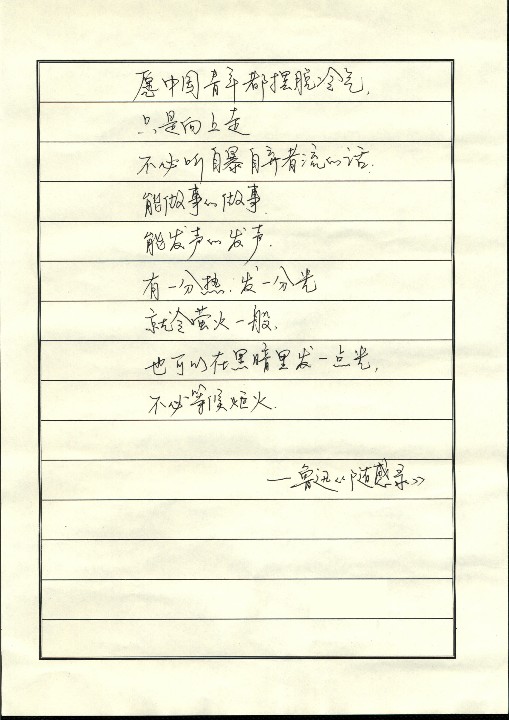 愿中国青年都摆脱冷气,
只是向上走
不必听自暴自弃者流的话.
能做事的做事.
能发声的发声.
有一分热.发一分光
就令萤火一般,
也可以在黑暗里发一点光,
不必等候炬火.
—鲁迅《随感录》